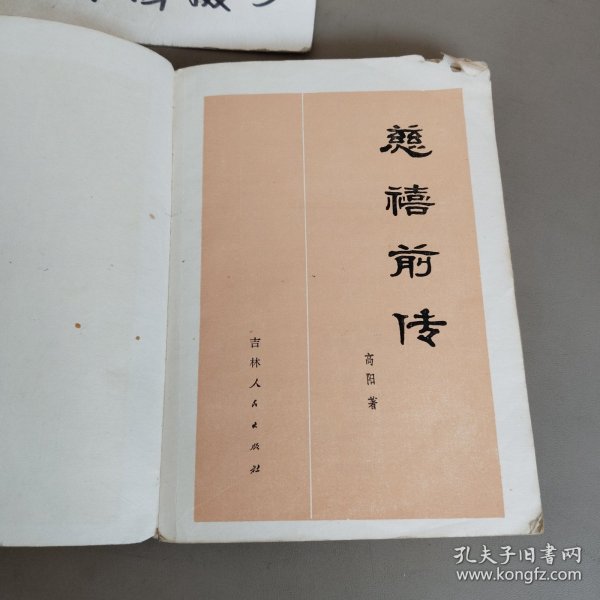 慈禧前传
高阳著
吉林人民出版社
孔夫子旧书网
www.kongfz.com